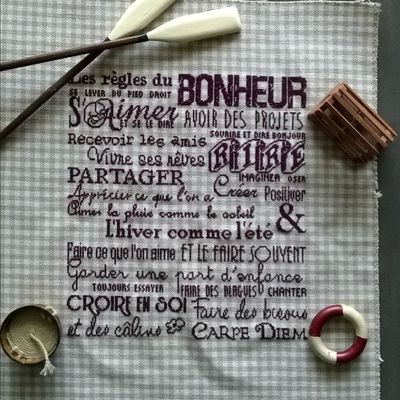 Les règles du BONHEUR
SE LEVER DU PIED DROIT
S'Aimer ET SE LE DIRE AVOIR DES PROJETS
Recevoir les amis SOURIRE ET DIRE BONJOUR
Vivre ses rêves RIRE
PARTAGER IMAGINER OSER
Apprécier ce que l'on a Créer Positiver
Aimer la pluie comme le soleil &
l'hiver comme l'été
Faire ce que l'on aime ET LE FAIRE SOUVENT
Garder une part d'enfance
TOUJOURS ESSAYER FAIRE DES BLAGUES CHANTER
CROIRE EN SOI Faire des bisous
et des câlins CARPE DIEM